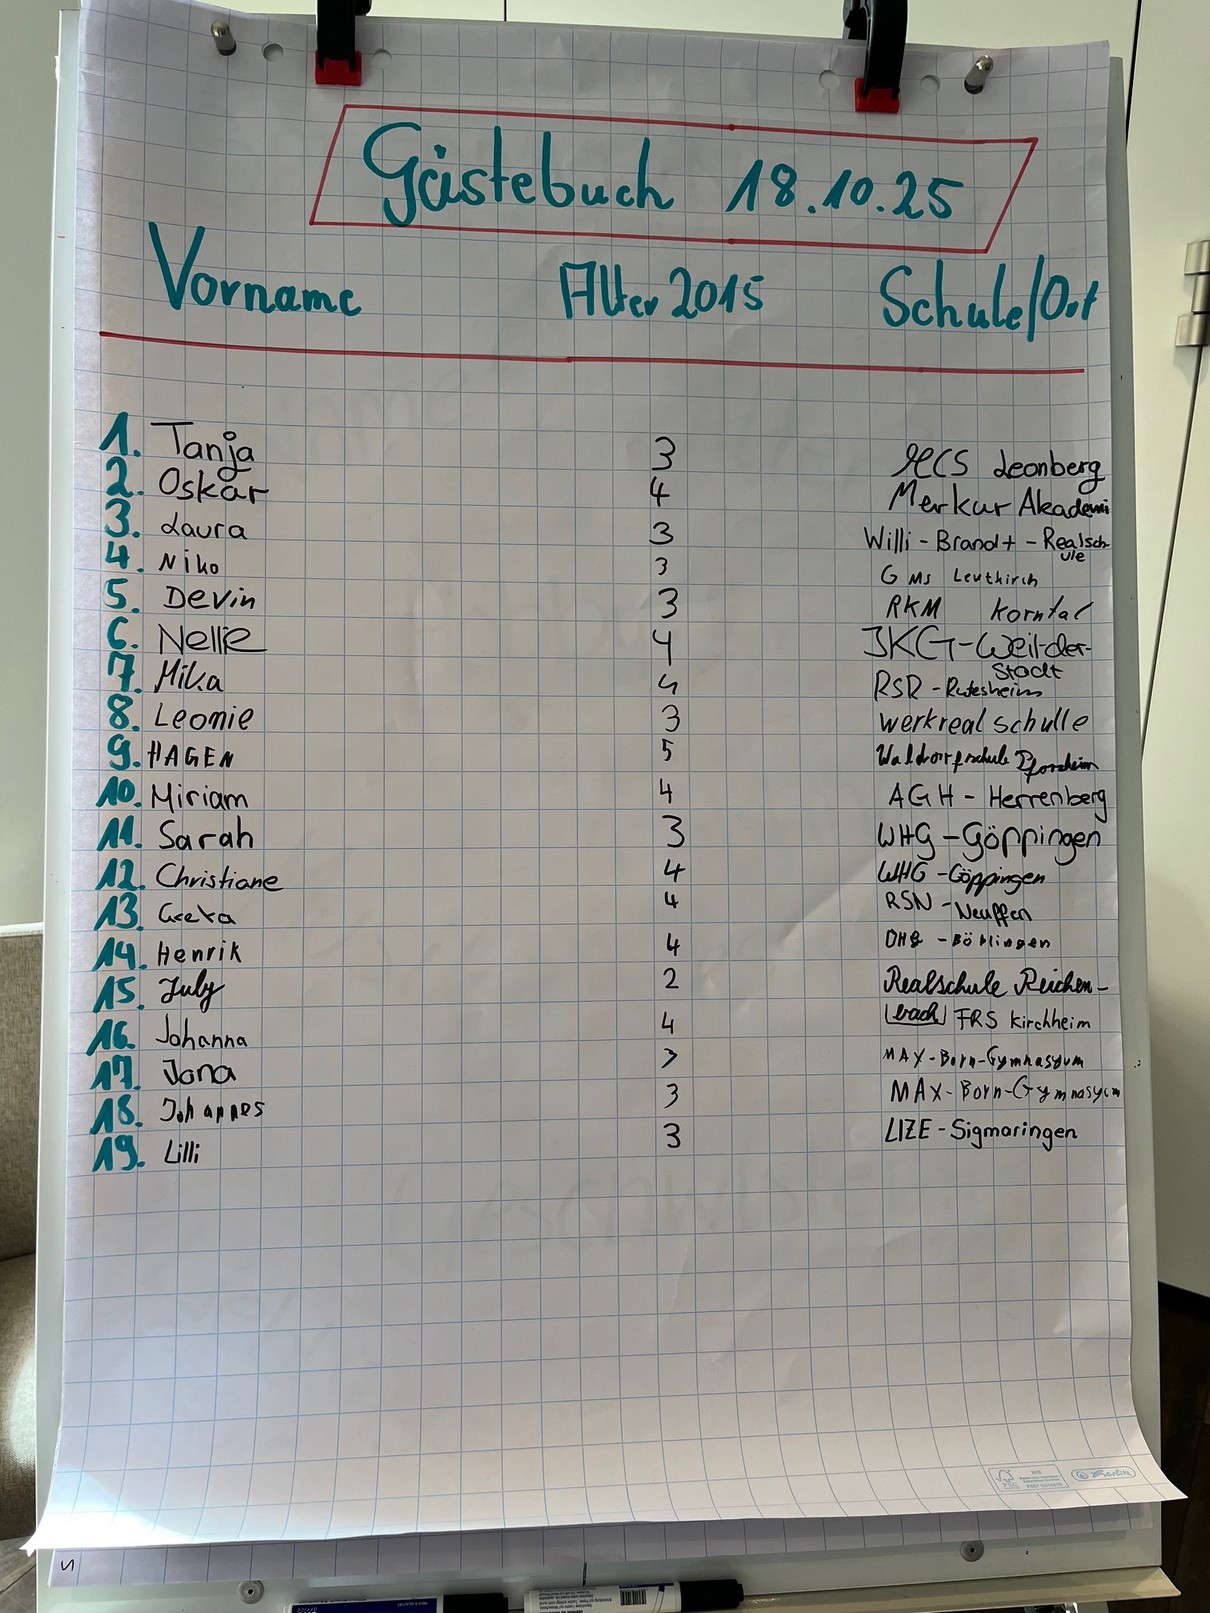 Gästebuch 18.10.25
Vorname Alter 2015 Schule/Ort
1. Tanja 3 Leonberg
2. Oskar 4 Merkur Akademi
3. Laura 3 Willi-Brandt-Realsch
ule
4. Niko 3 GMS Leutkirch
5. Devin 3 RKM Korntal
6. Nellie 4 JKG-Weil-der-
Stadt
7. Mika 4 RSR-Rutesheim
8. Leonie 3 werkrealschulle
9. HAGEN 5 Waldorfschule Pforzheim
10. Miriam 4 AGH-Herrenberg
11. Sarah 3 WHG-Göppingen
12. Christiane 4 WHG-Göppingen
13. Greta 4 RSN-Neuffen
14. Henrik 4 OHG-Böblingen
15. July 2 Realschule Reichen-
bach
16. Johanna 4 FRS Kirchheim
17. Jona 3 MAX-Born-Gymnasyum
18. Johannes 3 MAX-Born-Gymnasyum
19. Lilli 3 LIZE-Sigmaringen
FSC